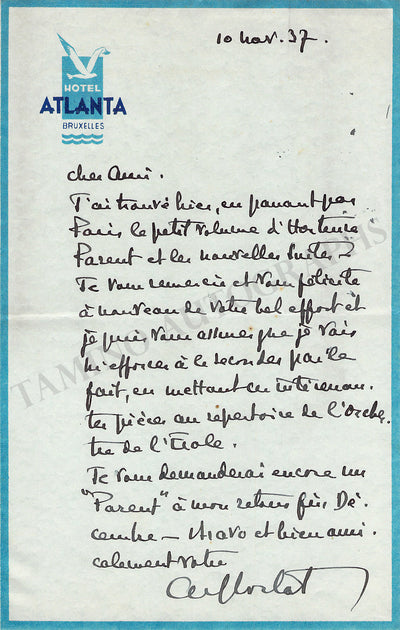 10 nov. 37.
HOTEL
ATLANTA
BRUXELLES
cher Ami.
J'ai trouvé hier, en passant par
Paris le petit volume d'Hortense
Parent et les nouvelles Suites.
Je vous remercie et vous félicite
à nouveau de votre bel effort et
je puis vous assurer que je vais
m'efforcer à le seconder par le
fait, en mettant ces intéressan
tes pièces au répertoire de l'Orches
tre de l'École.
Je vous demanderai encore un
"Parent" à mon retour fin Dé
cembre — bravo et bien ami
calement votre
TAMINO AUTOGRAPHS